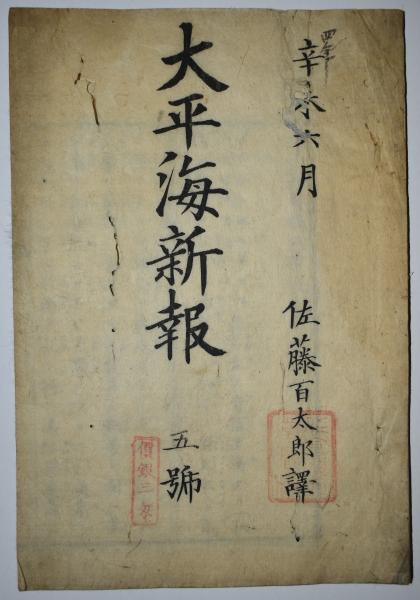 辛未六月
佐藤百太郎譯
大平海新報
五號
價銀三匁